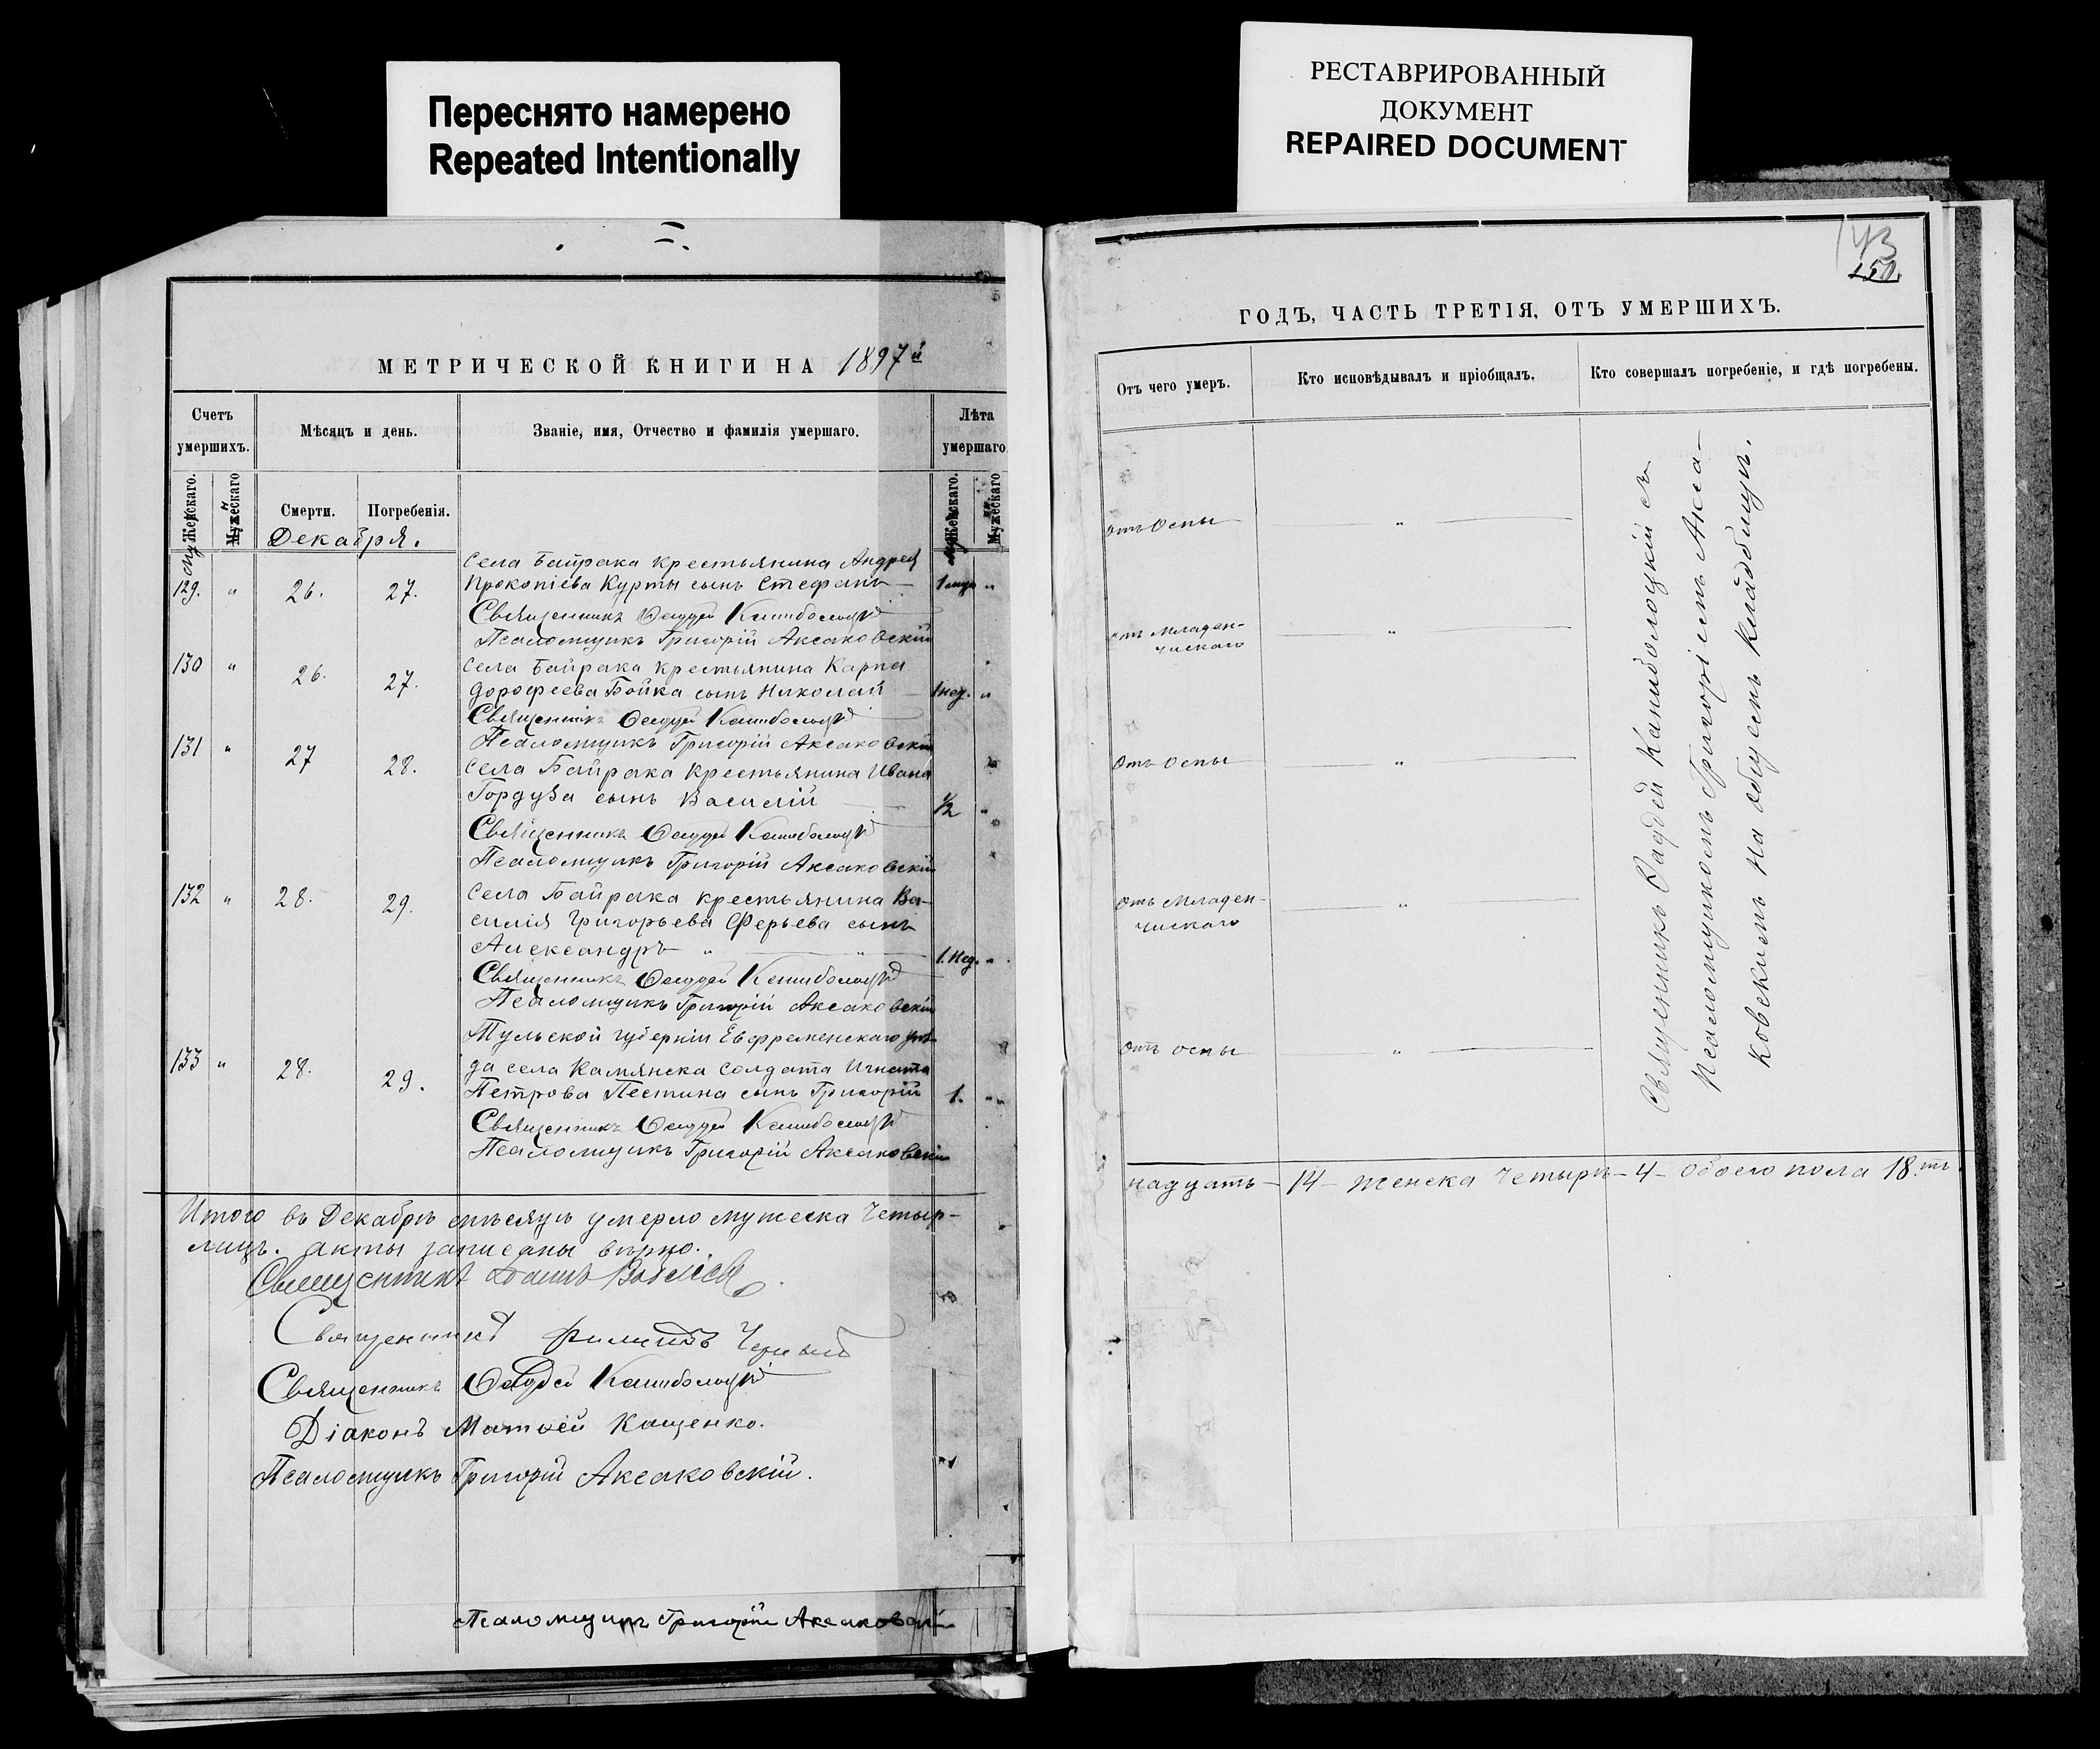 Переснято намерено
Repeated Intentionally
РЕСТАВРИРОВАННЫЙ
ДОКУМЕНТ
REPAIRED DOCUMENT
МЕТРИЧЕСКОЙ КНИГИ НА 1897й
Счетъ
умершихъ.
Мѣсяцъ и день.
Званіе, имя, Отчество и фамилія умершаго.
Лѣта
умершаго
Женскаго.
Мужескаго
Смерти.
Погребенія.
Женскаго.
Мужескаго
Декабря.
Села Байрака крестьянина Андрея
129. " 26. 27. Прокопіева Курты сынъ Стефанъ "
Священникъ Фаддей
Псаломщикъ Григорій Аксаковскій
130 " 26. 27. Села Байрака крестьянина Карпа
Дорофеева Бойка сынъ Николай 1 нед. "
Священникъ Фаддей
Псаломщикъ Григорій Аксаковскій
131 " 27 28. Села Байрака крестьянина Ивана
сынъ Василій 1/2 "
Священникъ Фаддей
Псаломщикъ Григорій Аксаковскій
132 " 28. 29. Села Байрака крестьянина Ва-
силія Григорьева Ферьева сынъ
Александръ " " 1. Нед. "
Священникъ Фаддей
Псаломщикъ Григорій Аксаковскій
Тульской губерніи Евфременскаго уѣз-
133 " 28. 29. да села Камянска солдата Игната
Петрова Пестина сынъ Григорій 1. "
Священникъ Фаддей
Псаломщикъ Григорій Аксаковскій
Итого въ Декабрѣ мѣсяцѣ умерло мужеска Четыр-
лицъ. акты записаны вѣрно.
Священникъ
Священникъ Филиппъ Черный
Священникъ Фаддей
Діаконъ Матѳей Кащенко.
Псаломщикъ Григорій Аксаковскій.
Псаломщикъ Григорій Аксаковскій
143
150.
ГОДЪ, ЧАСТЬ ТРЕТІЯ, ОТЪ УМЕРШИХЪ.
Отъ чего умеръ.
Кто исповѣдывалъ и пріобщалъ.
Кто совершалъ погребеніе, и гдѣ погребены.
отъ Оспы "
отъ Младен-
ческаго "
Отъ Оспы "
отъ Младен-
ческаго "
отъ оспы "
Священникъ Фаддей съ
Псаломщикомъ Григоріемъ Акса-
ковскимъ на общемъ кладбищѣ.
надцать - 14 - женска четырѣ - 4 - обоего пола 18.ть